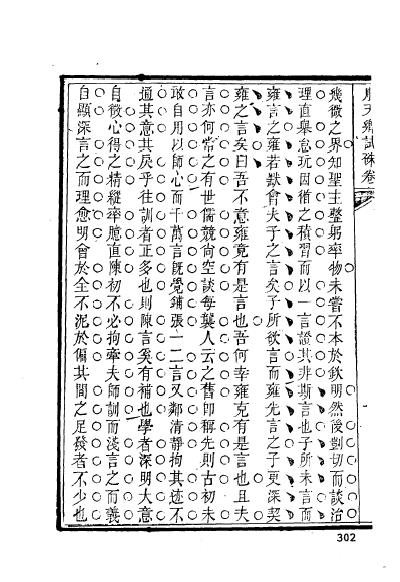 順天鄉試硃卷
幾微之界知聖主整躬率物未嘗不本於欽明然後剴切而談治
理直舉怠玩因循之積習而以一言證其非斯言也子所未言而
雍言之雍若默會夫子之言矣子所欲言而雍先言之子更深契
雍之言矣曰吾不意雍竟有是言也吾何幸雍克有是言也且夫
言亦何常之有世儒競尚空談每襲人云之舊卽稱先則古初未
敢自用以師心而千萬言旣覺鋪張一二言又鄰清靜拘其迹不
通其意其戾乎往訓者正多也則陳言奚有補也學者深明大意
自微心得之精縱率臆直陳初不必拘牽夫師訓而淺言之而義
自顯深言之而理愈明會於全不泥於偏其間之足發者不少也
302